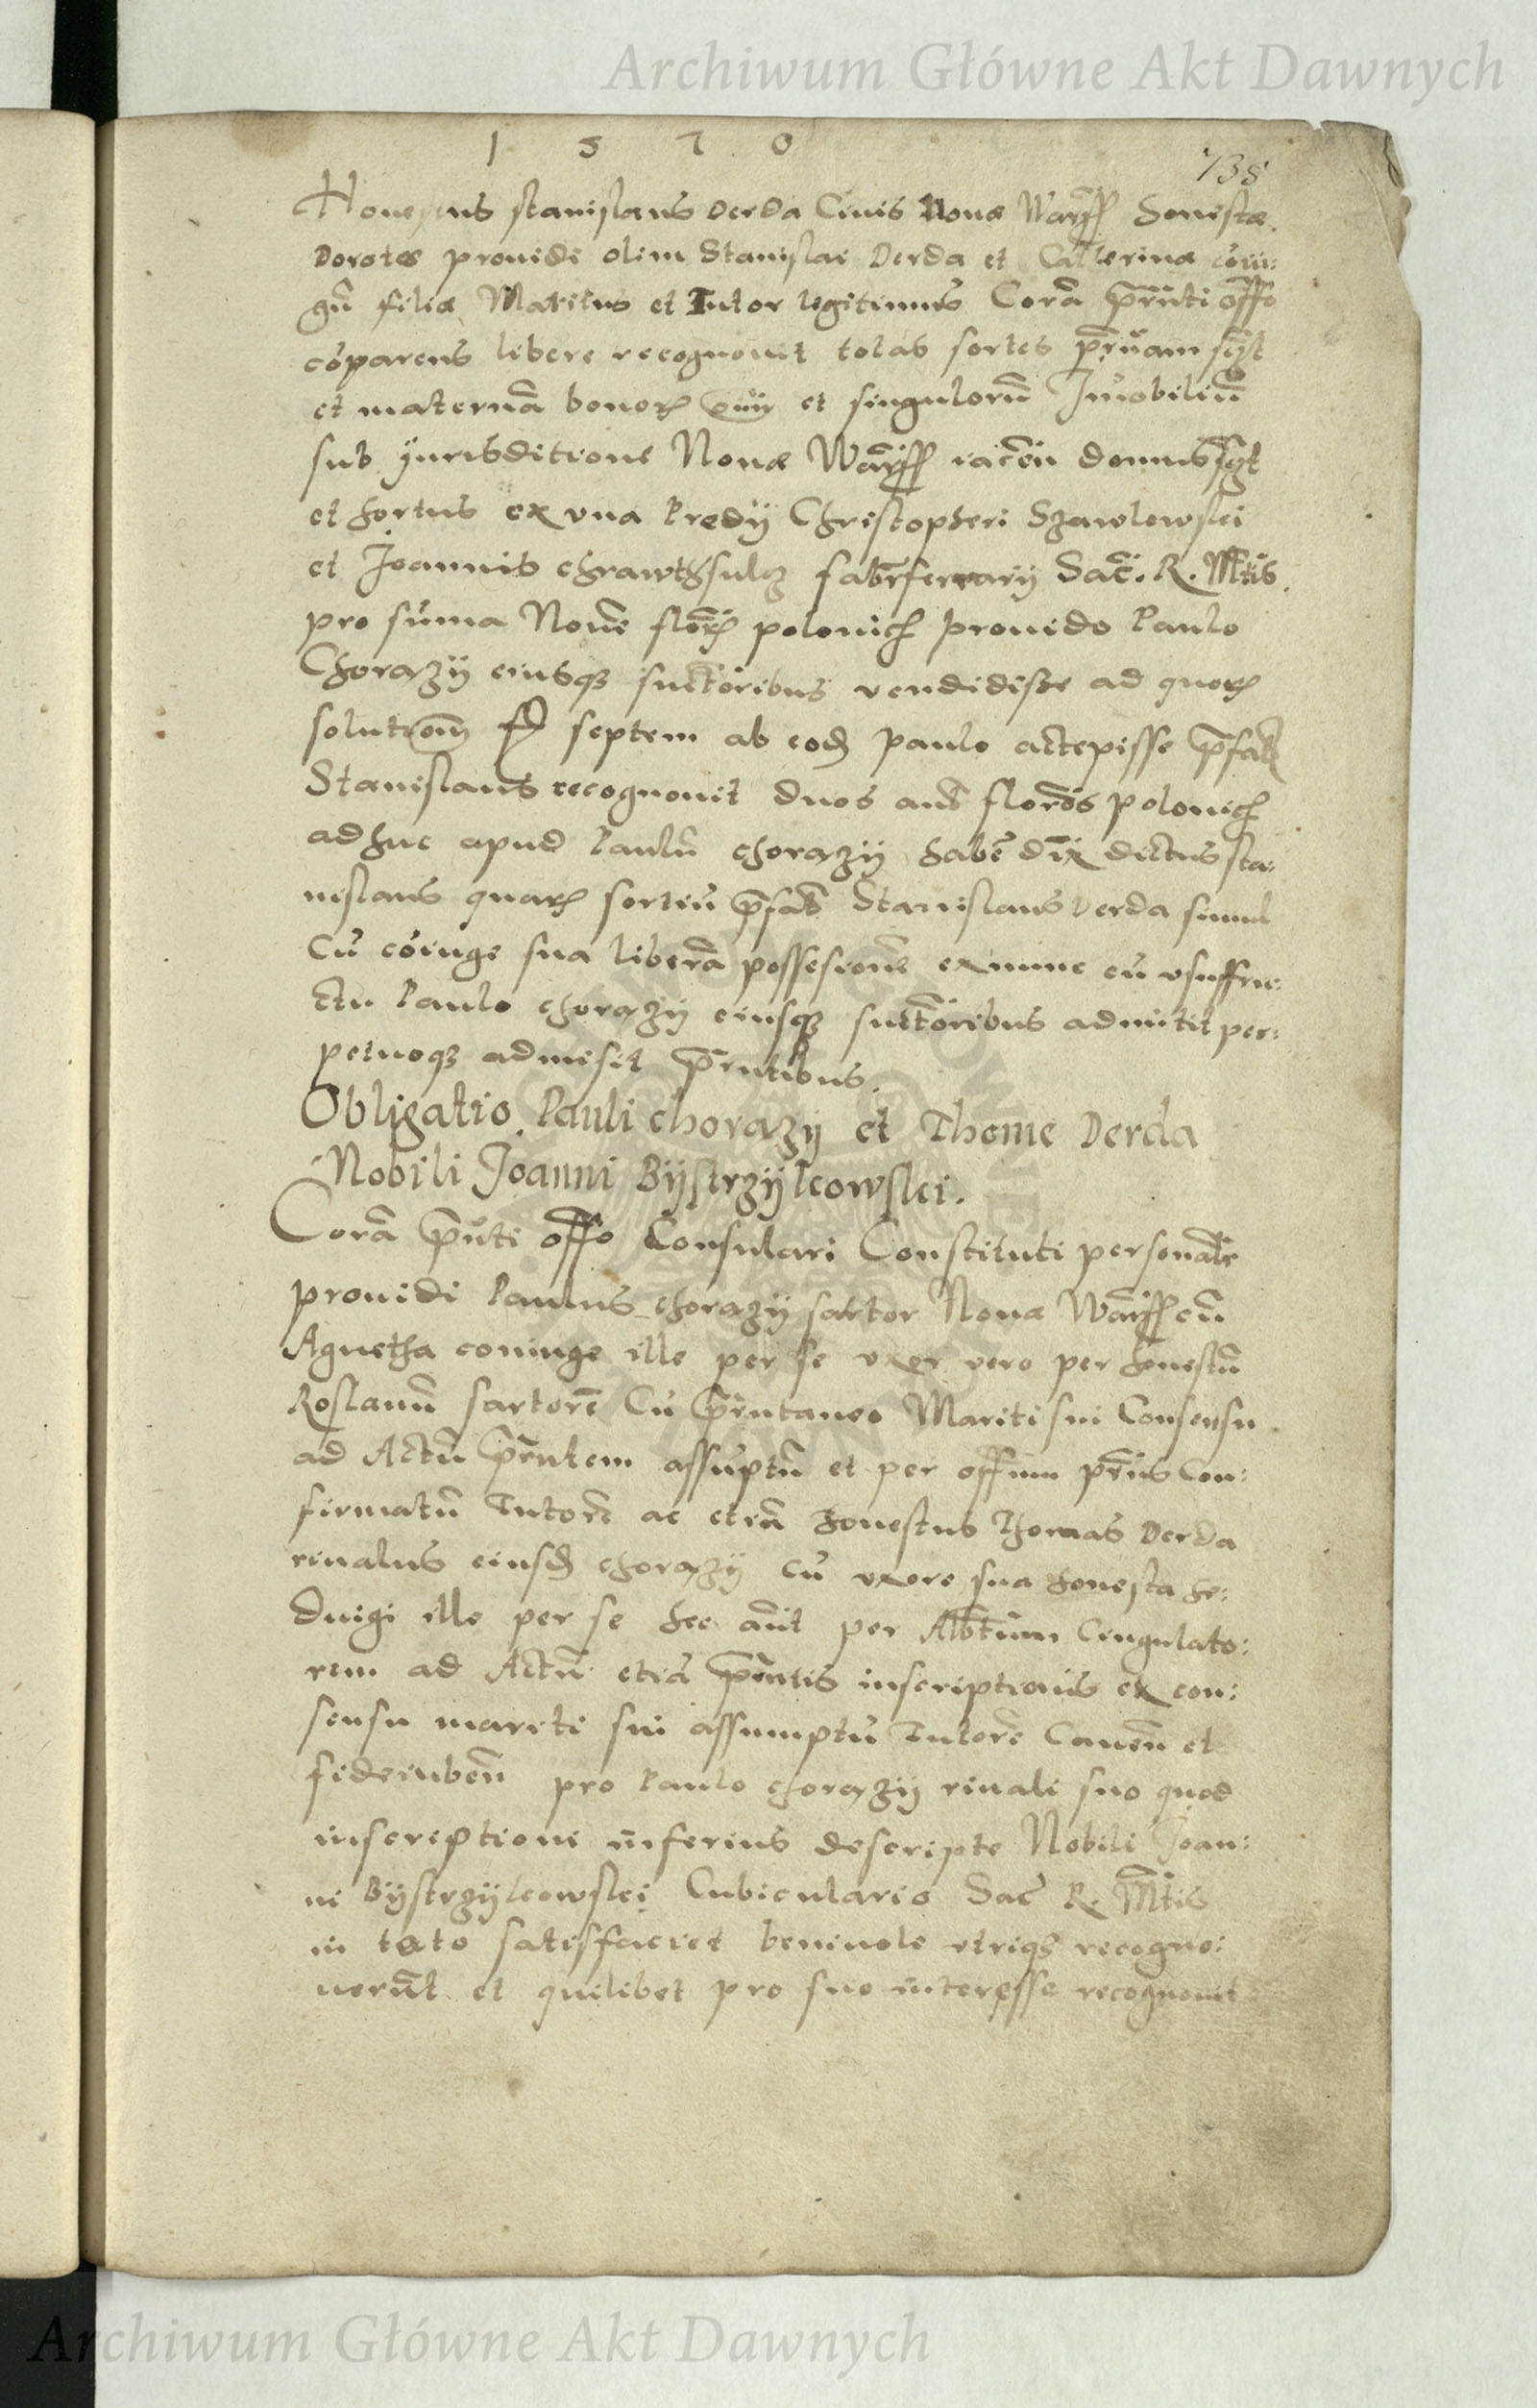 Archiwum Główne Akt Dawnych
1 5 7 0
738
Honestus Stanislaus Derda Civis Nouæ Warsß honestæ
Dorotes prouidi olim Stanislai Derda et Catterinæ coiu:
gū filiæ Maritus et Tutor legitimus Corā prnti offo
cōparens libere recognouit totas sortes prnam sczt
et maternā bonorꝝ oīm et singulorū Imobiliū
sub yurisditione Nouæ Warsß iaceñ domus sczt
et hortus ex vna Predÿ Christopheri Szawlowski
et Joannis chrawthsulcz fabrferrarÿ Sac. R. Mtis.
pro sūma Nouē florꝝ polonich prouido Paulo
Chorazÿ eiusqꝫ suctoribus vendidisse ad quorꝝ
solutionē septem ab eod Paulo accepisse prfat
Stanislaus recognouit duos aut florōs polonich
adhuc apud Paulū chorazÿ habē dictus sta:
nislaus quarꝝ sortiū prfat Stanislaus Derda simul
Cū cōiuge sua liberā possesionē ex nunc cū vsuffru:
ctu Paulo chorazÿ eiusqꝫ suctoribus admitit per:
petuoqꝫ admisit prntibus.
Obligatio Pauli chorazÿ et Thome Derda
Nobili Joanni Bÿstrzÿkowskei.
Corā prnti offo Consulari Constituti personalr
prouidi Paulus chorazÿ sartor Nouæ Warsß cū
Agnetha coniuge ille per se vxor vero per honestū
Roslanū sartorē Cū prntaneo Mariti sui Consensu
ad Actū prntem assūptū et per offium prius Con:
firmatū Tutorē ac etiā honestus Thomas Derda
riualus eiusd chorazÿ cū vxore sua honesta He:
duigi ille per se hec aut per Albtum Cingulato:
rem ad Actū etiā prntis inscriptionis ex con:
sensu mariti sui assumptū Tutorē Caueñ et
fideiubeñ pro Paulo chorazÿ riuali suo quod
inscriptioni inferius descripte Nobili Joan:
ni Bÿstrzÿkowskei Cubiculario Sac R. Mtis
in toto satisfaciet beniuole vtriqꝫ recogno:
uerūt et quilibet pro suo interesse recognouit
Archiwum Główne Akt Dawnych